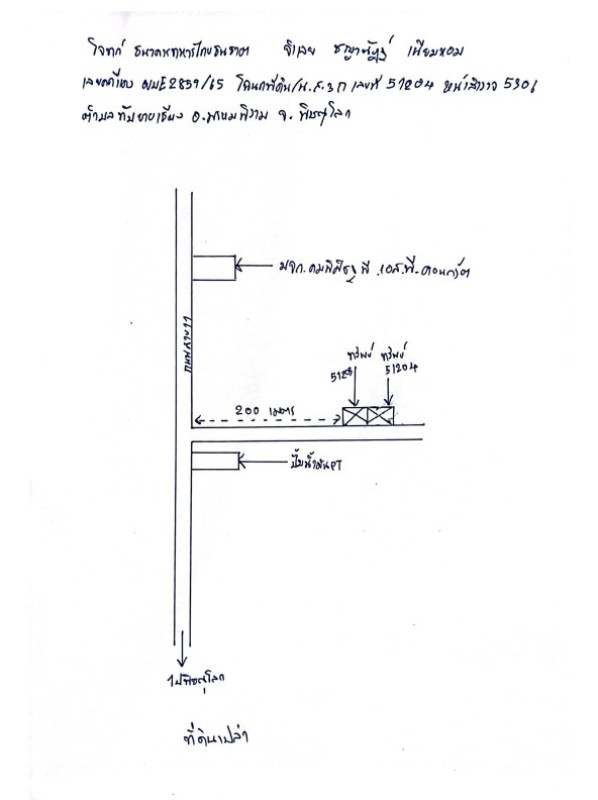 โจทก์ ธนาคารทหารไทยธนชาต จำเลย เนียมหอม
เลขคดีแดง ผบE2859/65 โฉนดที่ดิน/น.ส.3ก เลขที่ 51204 หน้าสำรวจ 5306
ตำบล ทับยายเชียง อ.พรหมพิราม จ. พิษณุโลก
หจก.
คอนกรีต
ถนนสาย 11
ทรัพย์ ทรัพย์
51204
200 เมตร
ปั๊มน้ำมันPT
ไปพิษณุโลก
ที่ดินเปล่า